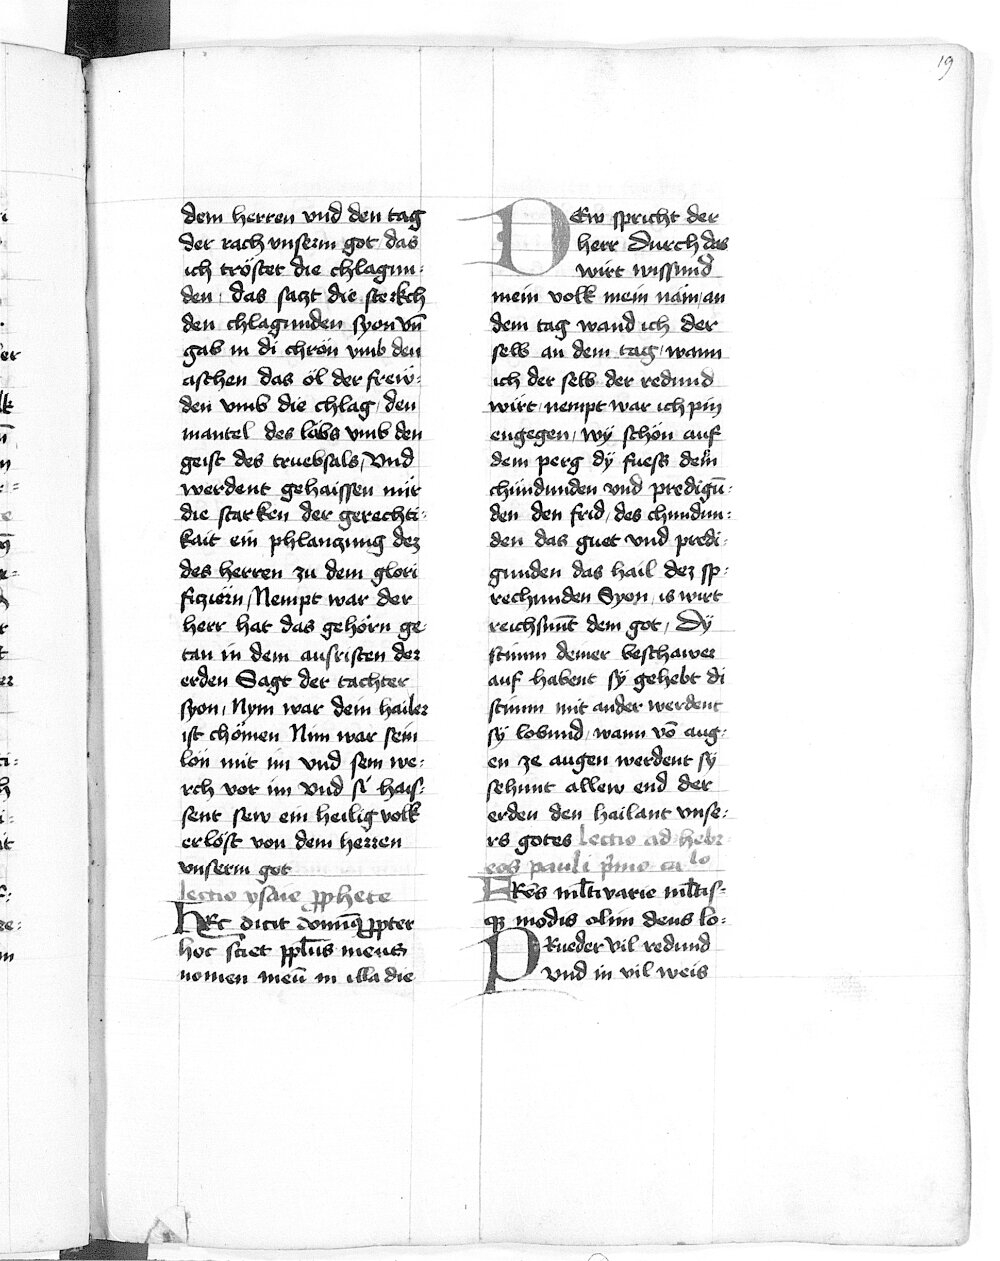 19
dem herren vnd den tag
der rach vnserm got das
ich tröstet die chlagun⸗
den / das sagt die sterkch
den chlagunden syon vn̄
gab in di chrön vmb den
aschen das öl der freẅ⸗
den vmb die chlag / den
mantel des lobs vmb den
geist des truebsals / Vnd
werdent gehaissen mir
die starken der gerechti⸗
kait ein phlanczung dez
des herren zu dem glori
ficziern / Nempt war der
herr hat das gehörn ge⸗
tan in dem ausristen der
erden Sagt der tachter
syon / Nym war dem hailer
ist chömen Nim war sein
lön mit im vnd sein we⸗
rch vor im vnd si hais⸗
sent sew ein heilig volk
erlöst von dem herren
vnserm got
lectio ysaie ꝓphete
HEc dicit domin9 ꝓpter
hoc sciet ppl̄us meus
nomen meū in illa die
DEw spricht der
herr Durch des
wirt wissund
mein volk mein nam / an
dem tag wand ich der
selb an dem tag / wann
ich der selb der redund
wirt / nempt war ich pin
engegen / wÿ schön auf
dem perg dÿ fuess dem
chündunden vnd predigū⸗
den den frid / des chundun⸗
den das guet vnd predi⸗
gunden das hail dez sp⸗
rechunden Syon / is wirt
reichsunt̄ dem got / Dÿ
stimm deiner beschawer
auf habent sÿ gehebt di
stimm mit ander werdent
sÿ lobund / wann vō aug⸗
en ze augen werdent sÿ
sehunt allew end der
erden den hailant vnse⸗
rs gotes lectio ad hebr
eos pauli p̄mo ca lo
FRēs ml̄tivarie ml̄tis⸗
qꝫ modis olim deus lo⸗
PRueder vil redund
vnd in vil weis